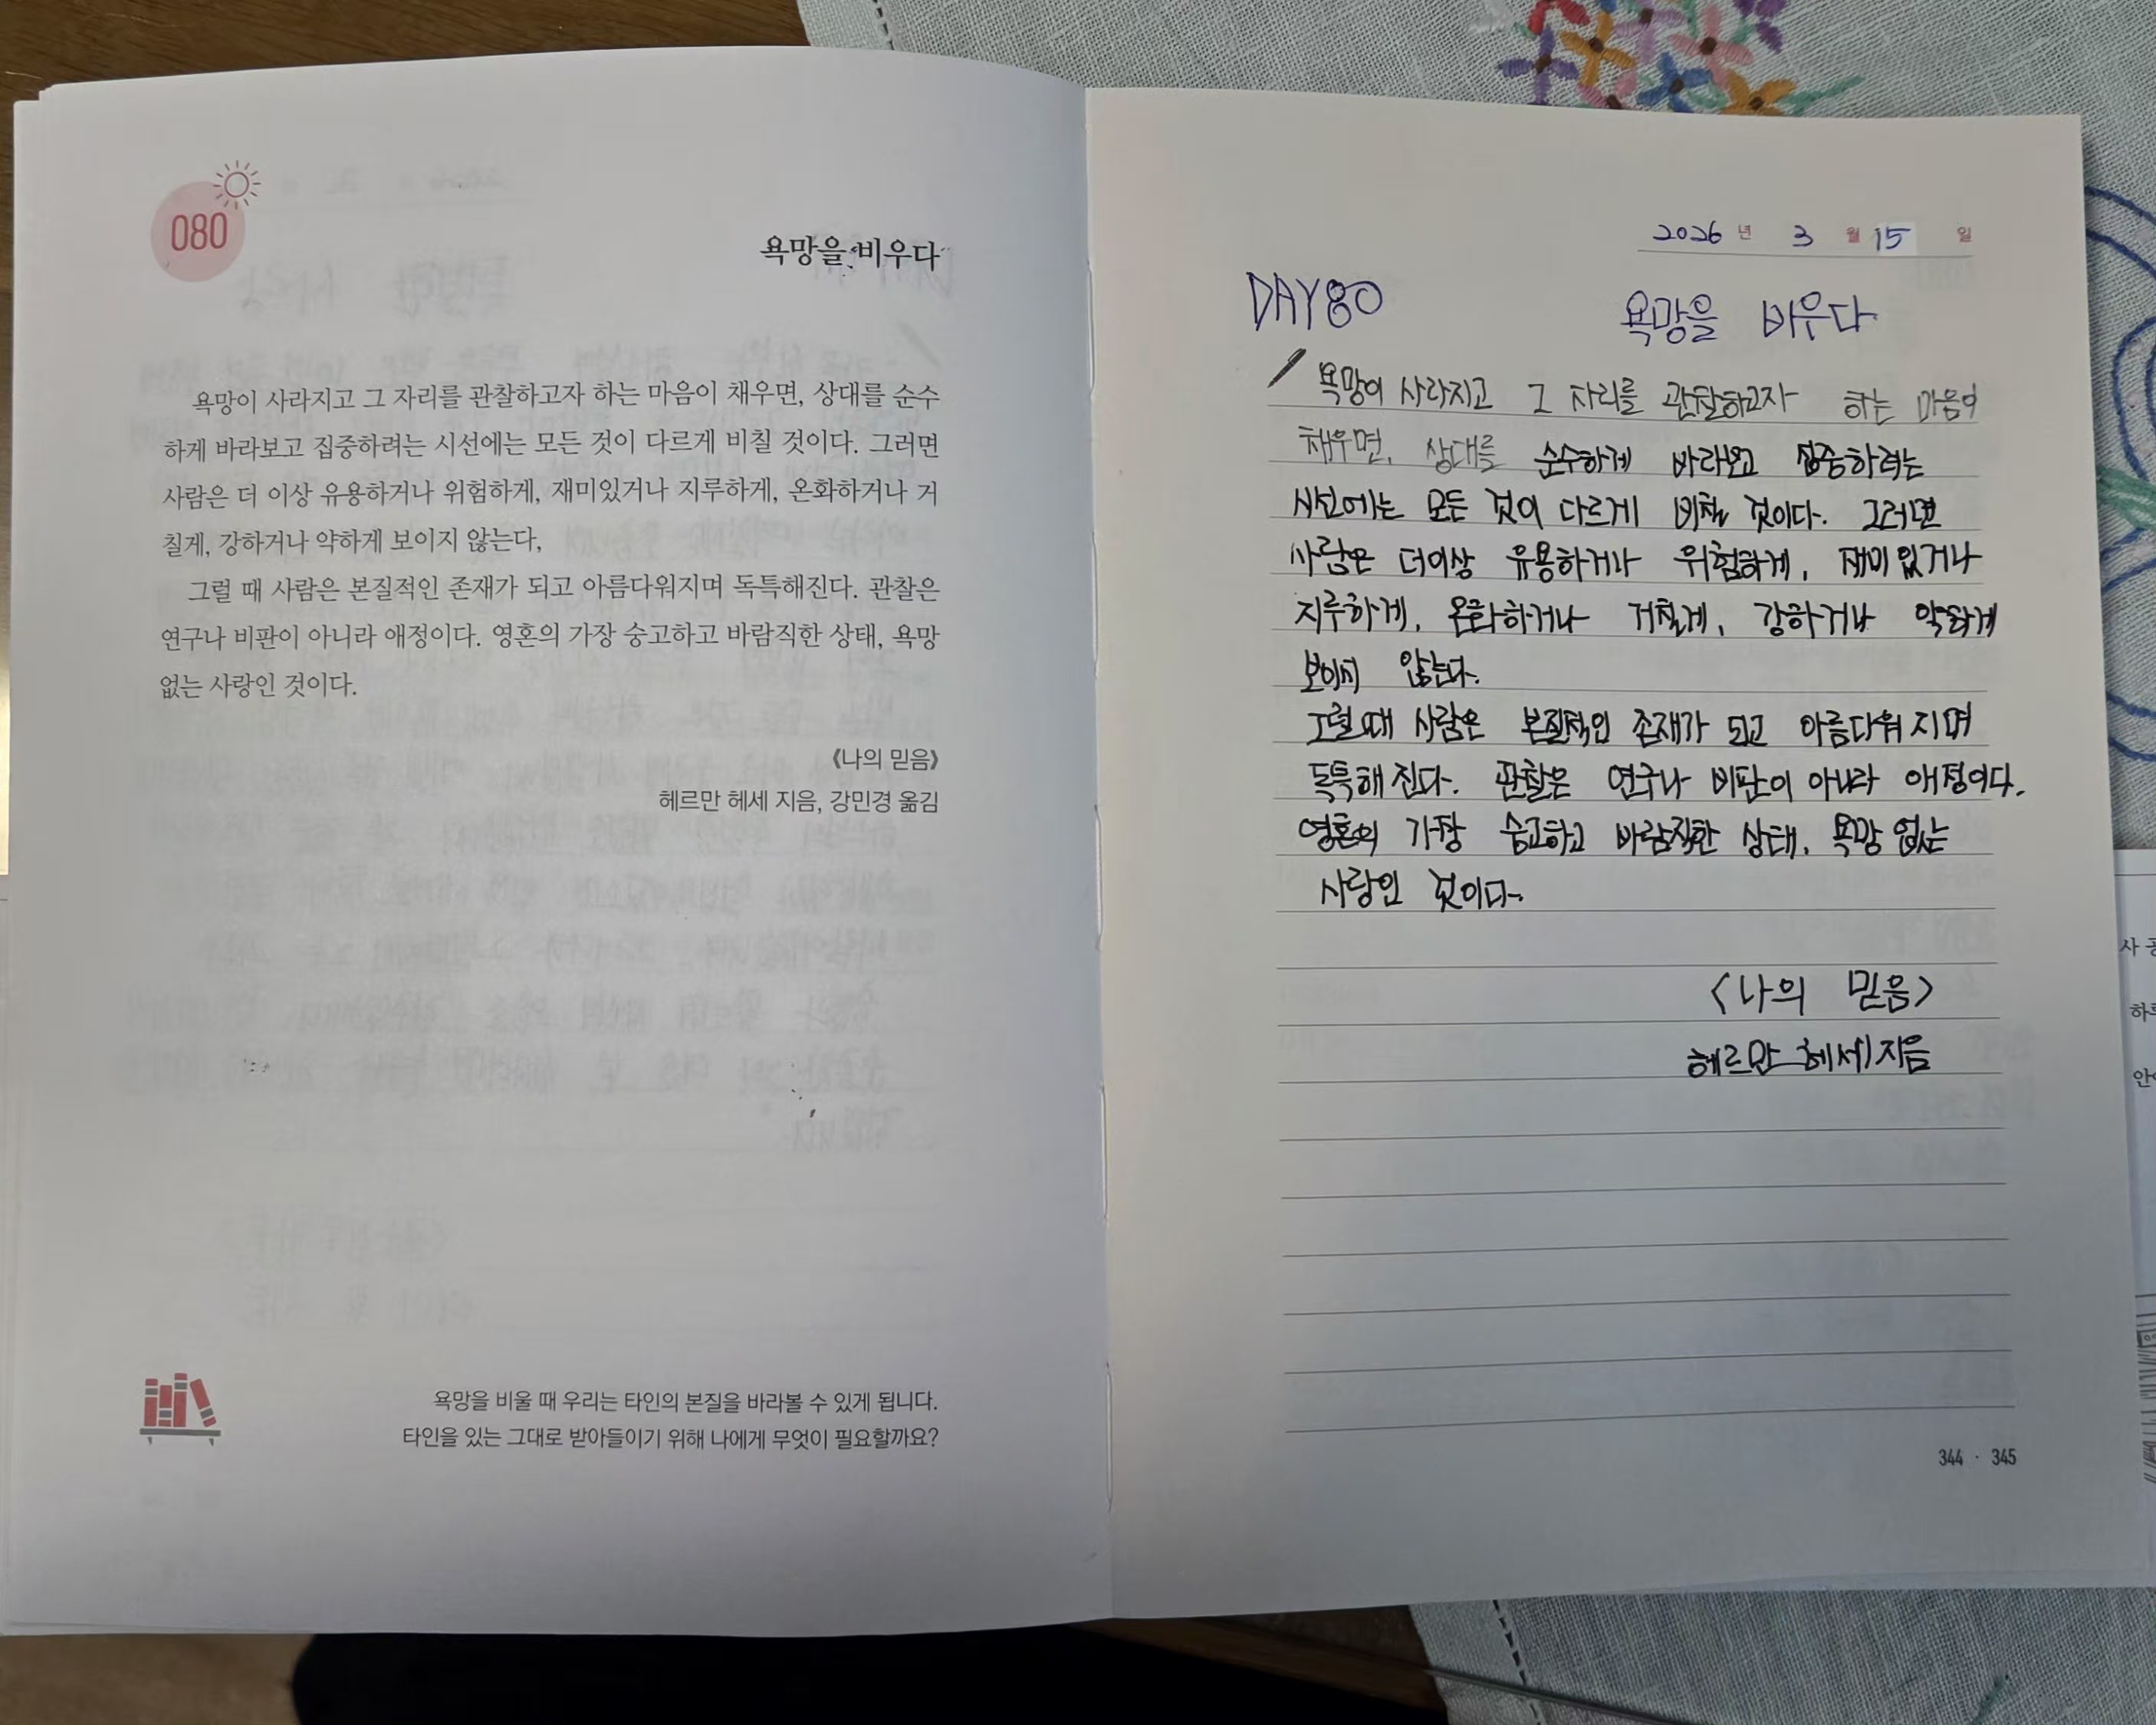 080
욕망을 비우다
욕망이 사라지고 그 자리를 관찰하고자 하는 마음이 채우면, 상대를 순수
하게 바라보고 집중하려는 시선에는 모든 것이 다르게 비칠 것이다. 그러면
사람은 더 이상 유용하거나 위험하게, 재미있거나 지루하게, 온화하거나 거
칠게, 강하거나 약하게 보이지 않는다,
그럴 때 사람은 본질적인 존재가 되고 아름다워지며 독특해진다. 관찰은
연구나 비판이 아니라 애정이다. 영혼의 가장 숭고하고 바람직한 상태, 욕망
없는 사랑인 것이다.
《나의 믿음》
헤르만 헤세 지음, 강민경 옮김
욕망을 비울 때 우리는 타인의 본질을 바라볼 수 있게 됩니다.
타인을 있는 그대로 받아들이기 위해 나에게 무엇이 필요할까요?
2026 년 3 월 15 일
DAY80 욕망을 비우다
욕망이 사라지고 그 자리를 관찰하고자 하는 마음이
채우면, 상대를 순수하게 바라보고 집중하려는
시선에는 모든 것이 다르게 비칠 것이다. 그러면
사람은 더이상 유용하거나 위험하게, 재미있거나
지루하게, 온화하거나 거칠게, 강하거나 약하게
보이지 않는다.
그럴 때 사람은 본질적인 존재가 되고 아름다워지며
독특해진다. 관찰은 연구나 비판이 아니라 애정이다.
영혼의 가장 숭고하고 바람직한 상태, 욕망 없는
사랑인 것이다.
<나의 믿음>
헤르만 헤세 지음
344 · 345